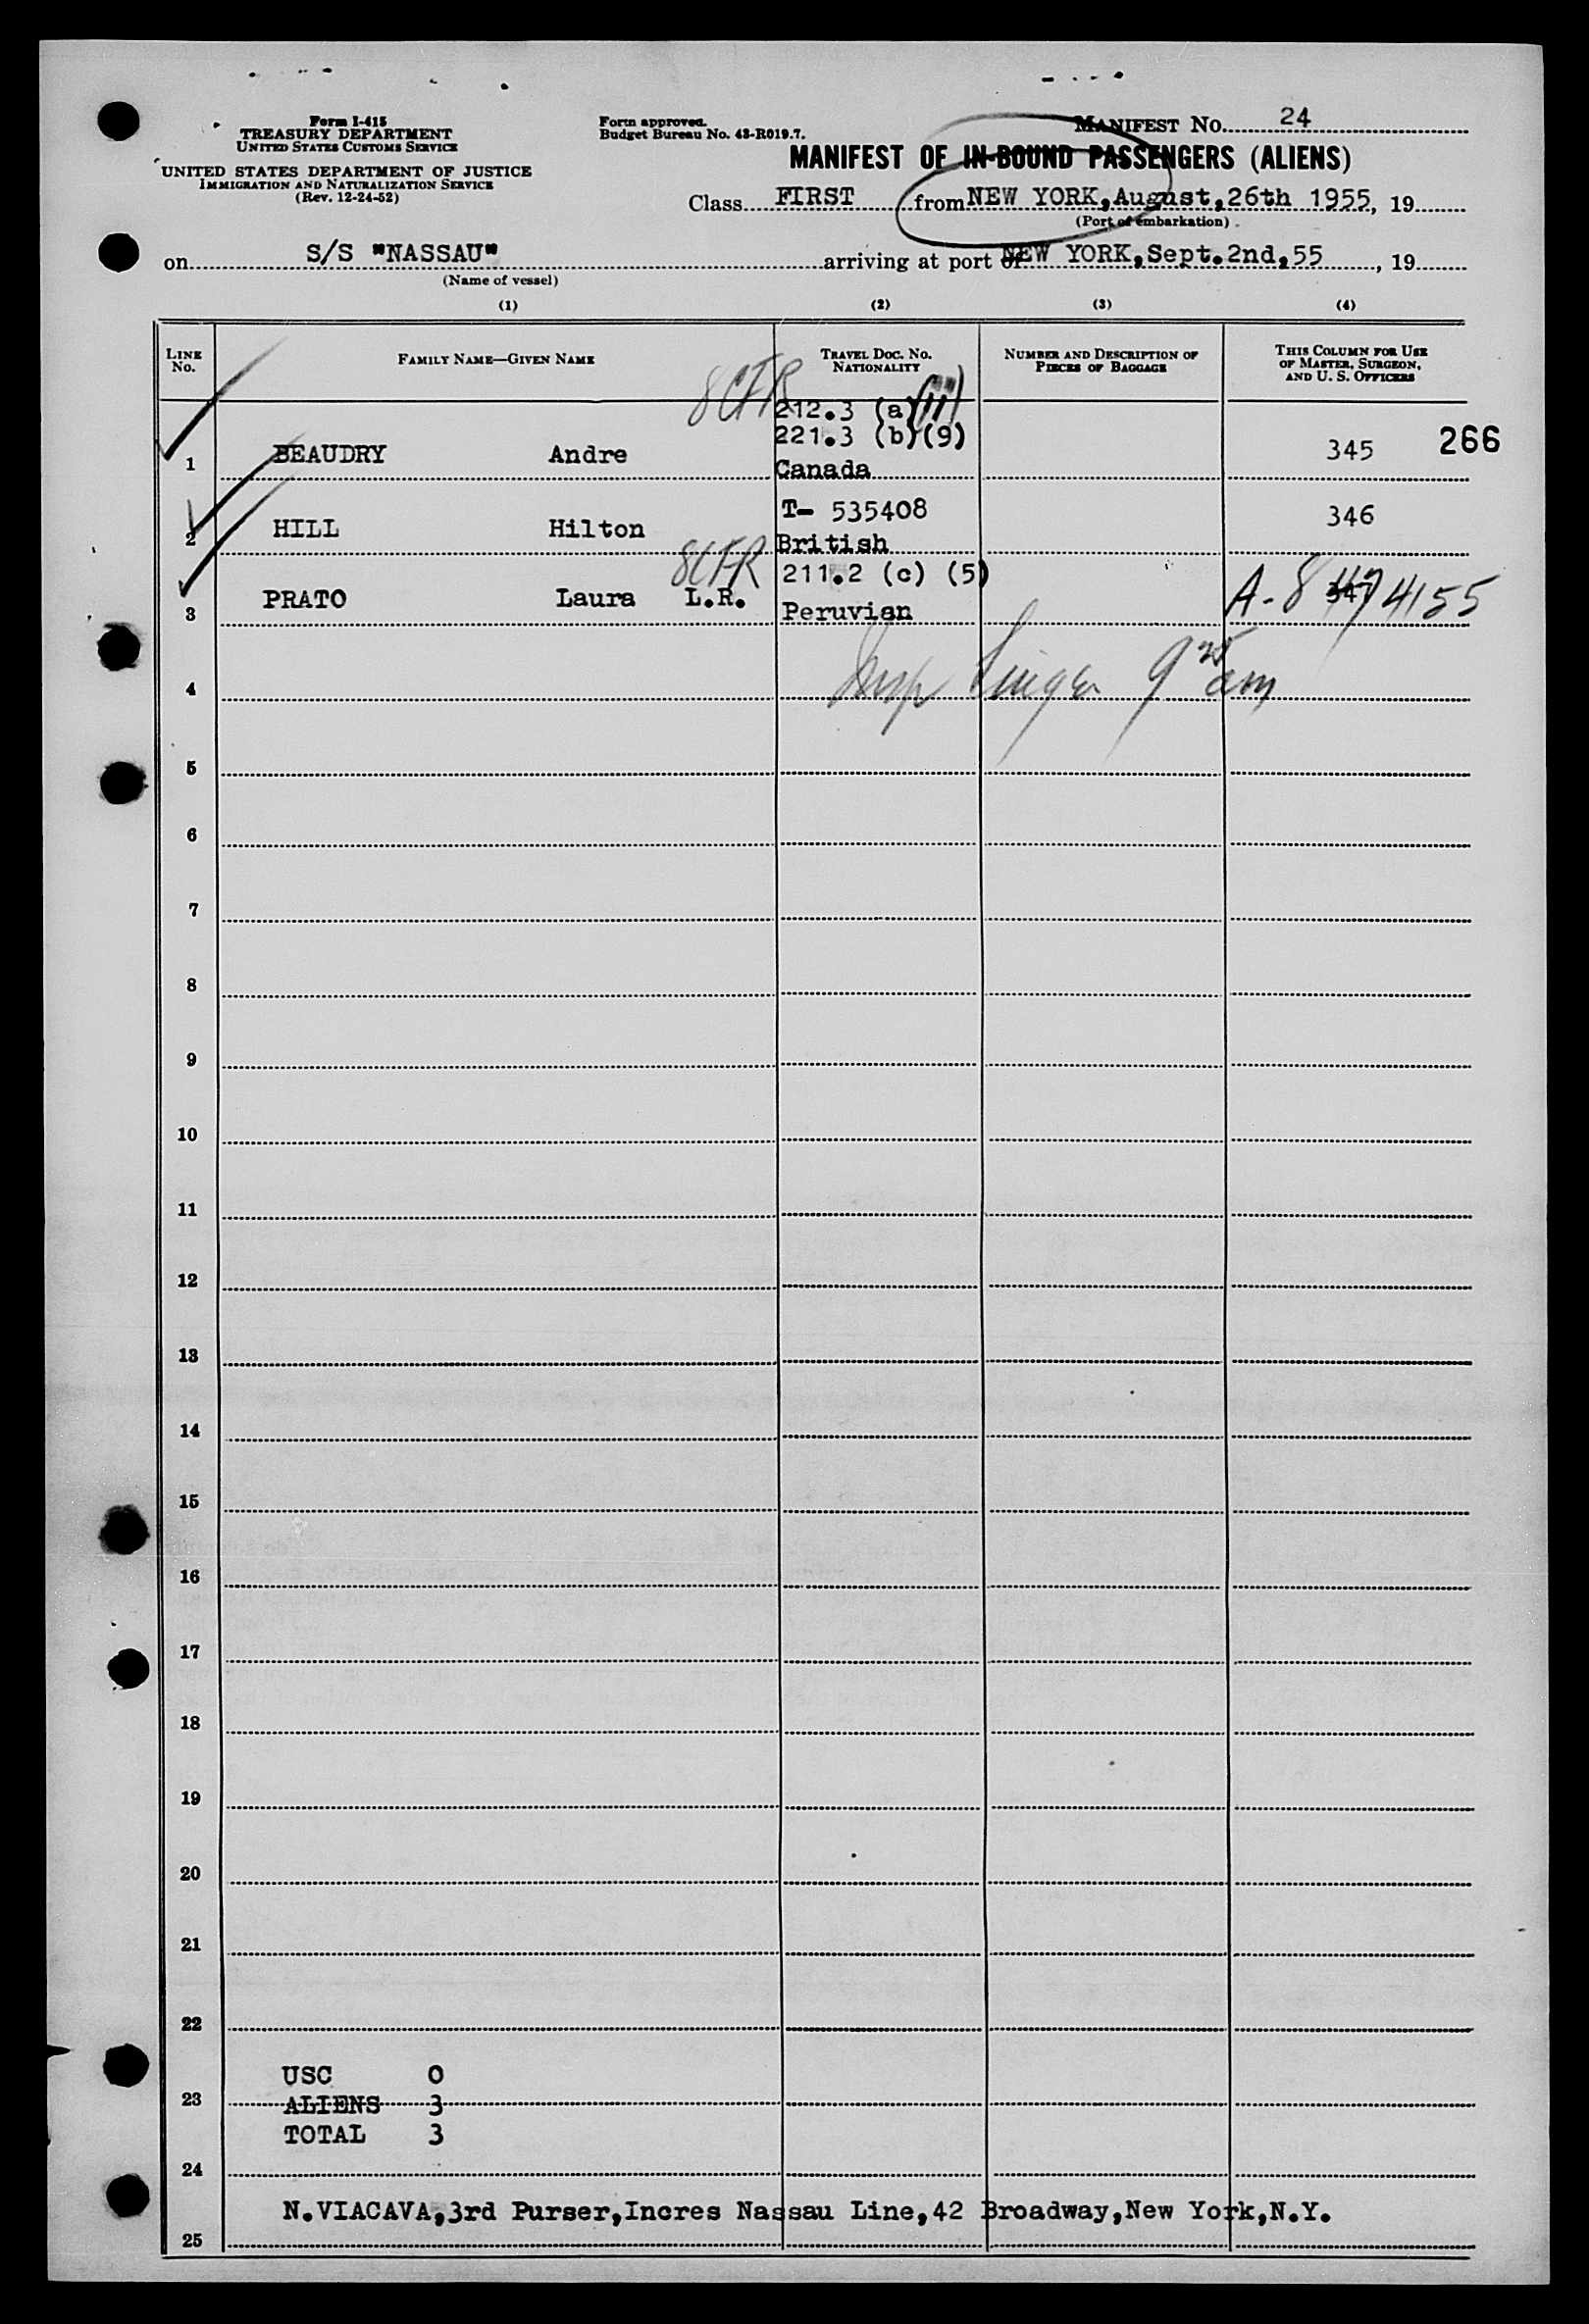 Form I-415
TREASURY DEPARTMENT
UNITED STATES CUSTOMS SERVICE
UNITED STATES DEPARTMENT OF JUSTICE
IMMIGRATION AND NATURALIZATION SERVICE
(Rev. 12-24-52)
Form approved.
Budget Bureau No. 43-R019.7.
MANIFEST No. 24
MANIFEST OF IN-BOUND PASSENGERS (ALIENS)
Class FIRST from NEW YORK, August, 26th 1955, 19
(Port of embarkation)
on S/S "NASSAU" arriving at port of NEW YORK, Sept. 2nd, 55, 19
(Name of vessel)
(1) (2) (3) (4)
LINE No. FAMILY NAME—GIVEN NAME TRAVEL DOC. NO. NATIONALITY NUMBER AND DESCRIPTION OF PIECES OF BAGGAGE THIS COLUMN FOR USE OF MASTER, SURGEON, AND U. S. OFFICERS
8CFR 212.3 (a)(11)
221.3 (b)(9)
1 BEAUDRY Andre Canada 345 266
T- 535408
2 HILL Hilton British 346
8CFR 211.2 (c) (5)
3 PRATO Laura L.R. Peruvian 347 A-8 4155
Insp Singer 9 am
4
5
6
7
8
9
10
11
12
13
14
15
16
17
18
19
20
21
22
USC 0
23 ALIENS 3
TOTAL 3
24
N.VIACAVA,3rd Purser,Incres Nassau Line,42 Broadway,New York,N.Y.
25